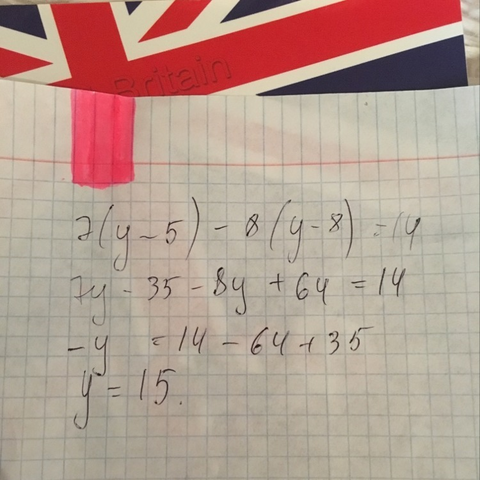 Britain
7(y-5)-8(y-8)=14
7y-35-8y+64=14
-y =14-64+35
y=15.